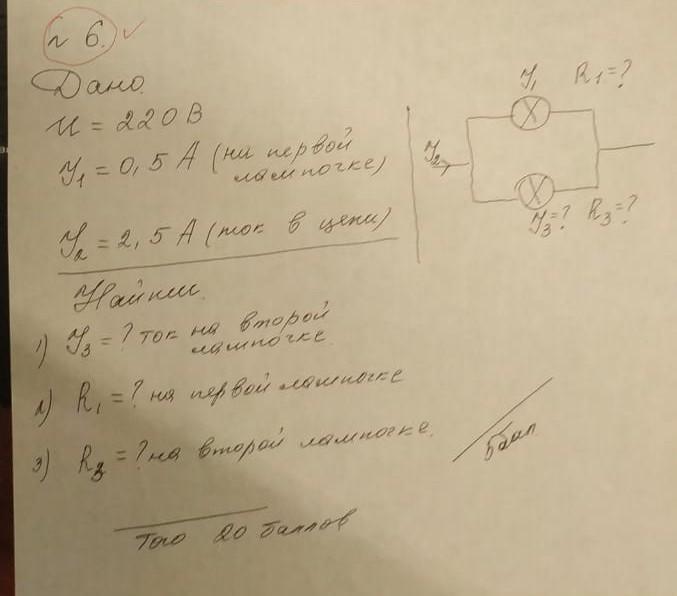 n 6.
Дано.
U = 220 В
J₁ = 0,5 А (на первой
лампочке)
J₂ = 2,5 А (ток в цепи)
Найти.
1) J₃ = ? ток на второй
лампочке.
2) R₁ = ? на первой лампочке
3) R₃ = ? на второй лампочке.
J₁ R₁ = ?
J₂
J₃ = ? R₃ = ?
5 бал
Того 20 баллов